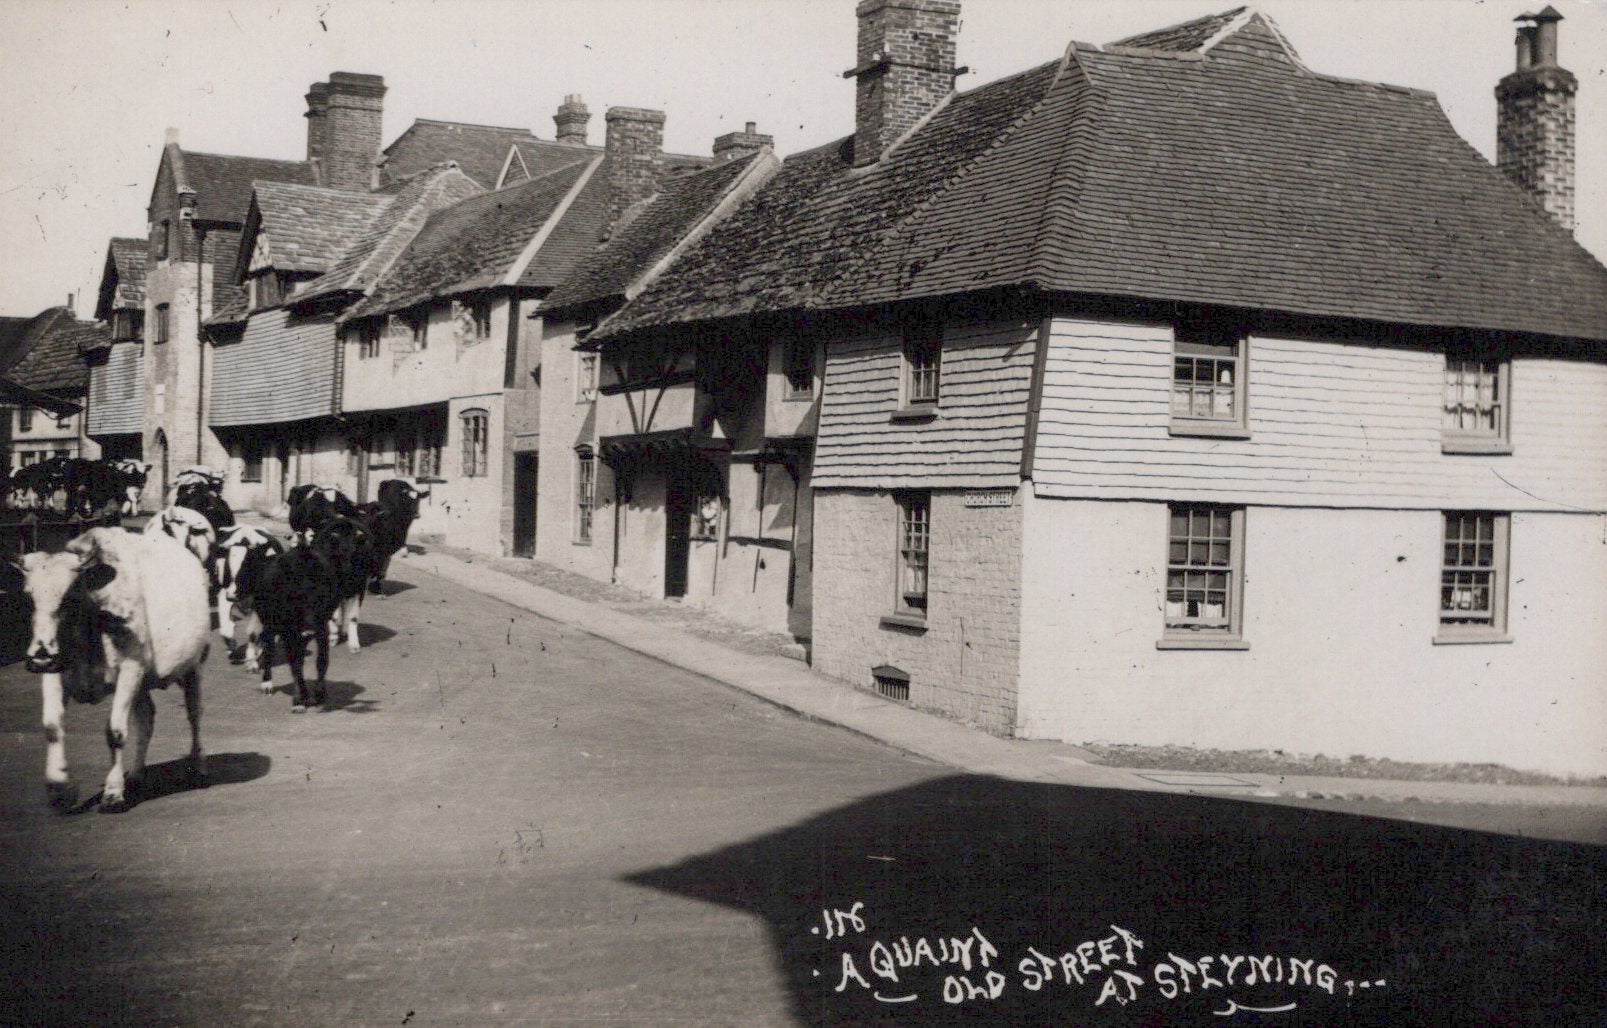 CHURCH STREET
.116
. A QUAINT
OLD STREET
AT STEYNING...